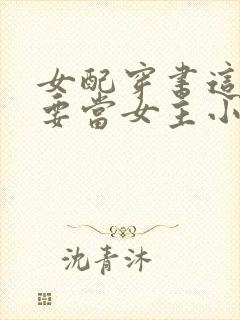 女配穿書這
要當女主小
沈青沐